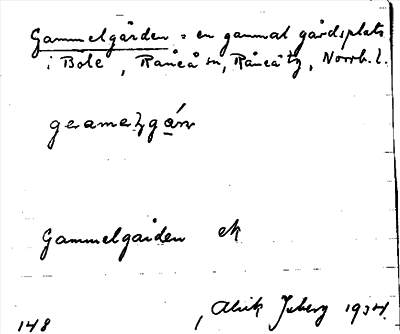 Gammelgården = en gammal gårdsplats
i Böle, Råneå sn, Råneå tg, Norrb. l.
Gammelgården ek
148
, Alrik 1934.